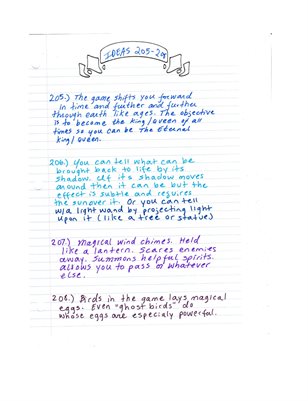 IDEAS 205-208
205.) The game shifts you forward
in time and further and further
through earth like ages. The objective
is to become the King/Queen of all
times so you can be The Eternal
King/Queen.
206.) You can tell what can be
brought back to life by its
shadow. If its shadow moves
around then it can be but the
effect is subtle and requires
the sun over it. Or you can tell
w/a light wand by projecting light
upon it (like a tree or statue)
207.) Magical wind chimes. Held
like a lantern. Scares enemies
away. Summons helpful spirits.
allows you to pass or whatever
else.
208.) Birds in the game lays magical
eggs. Even "ghost birds" do
whose eggs are especialy powerful.